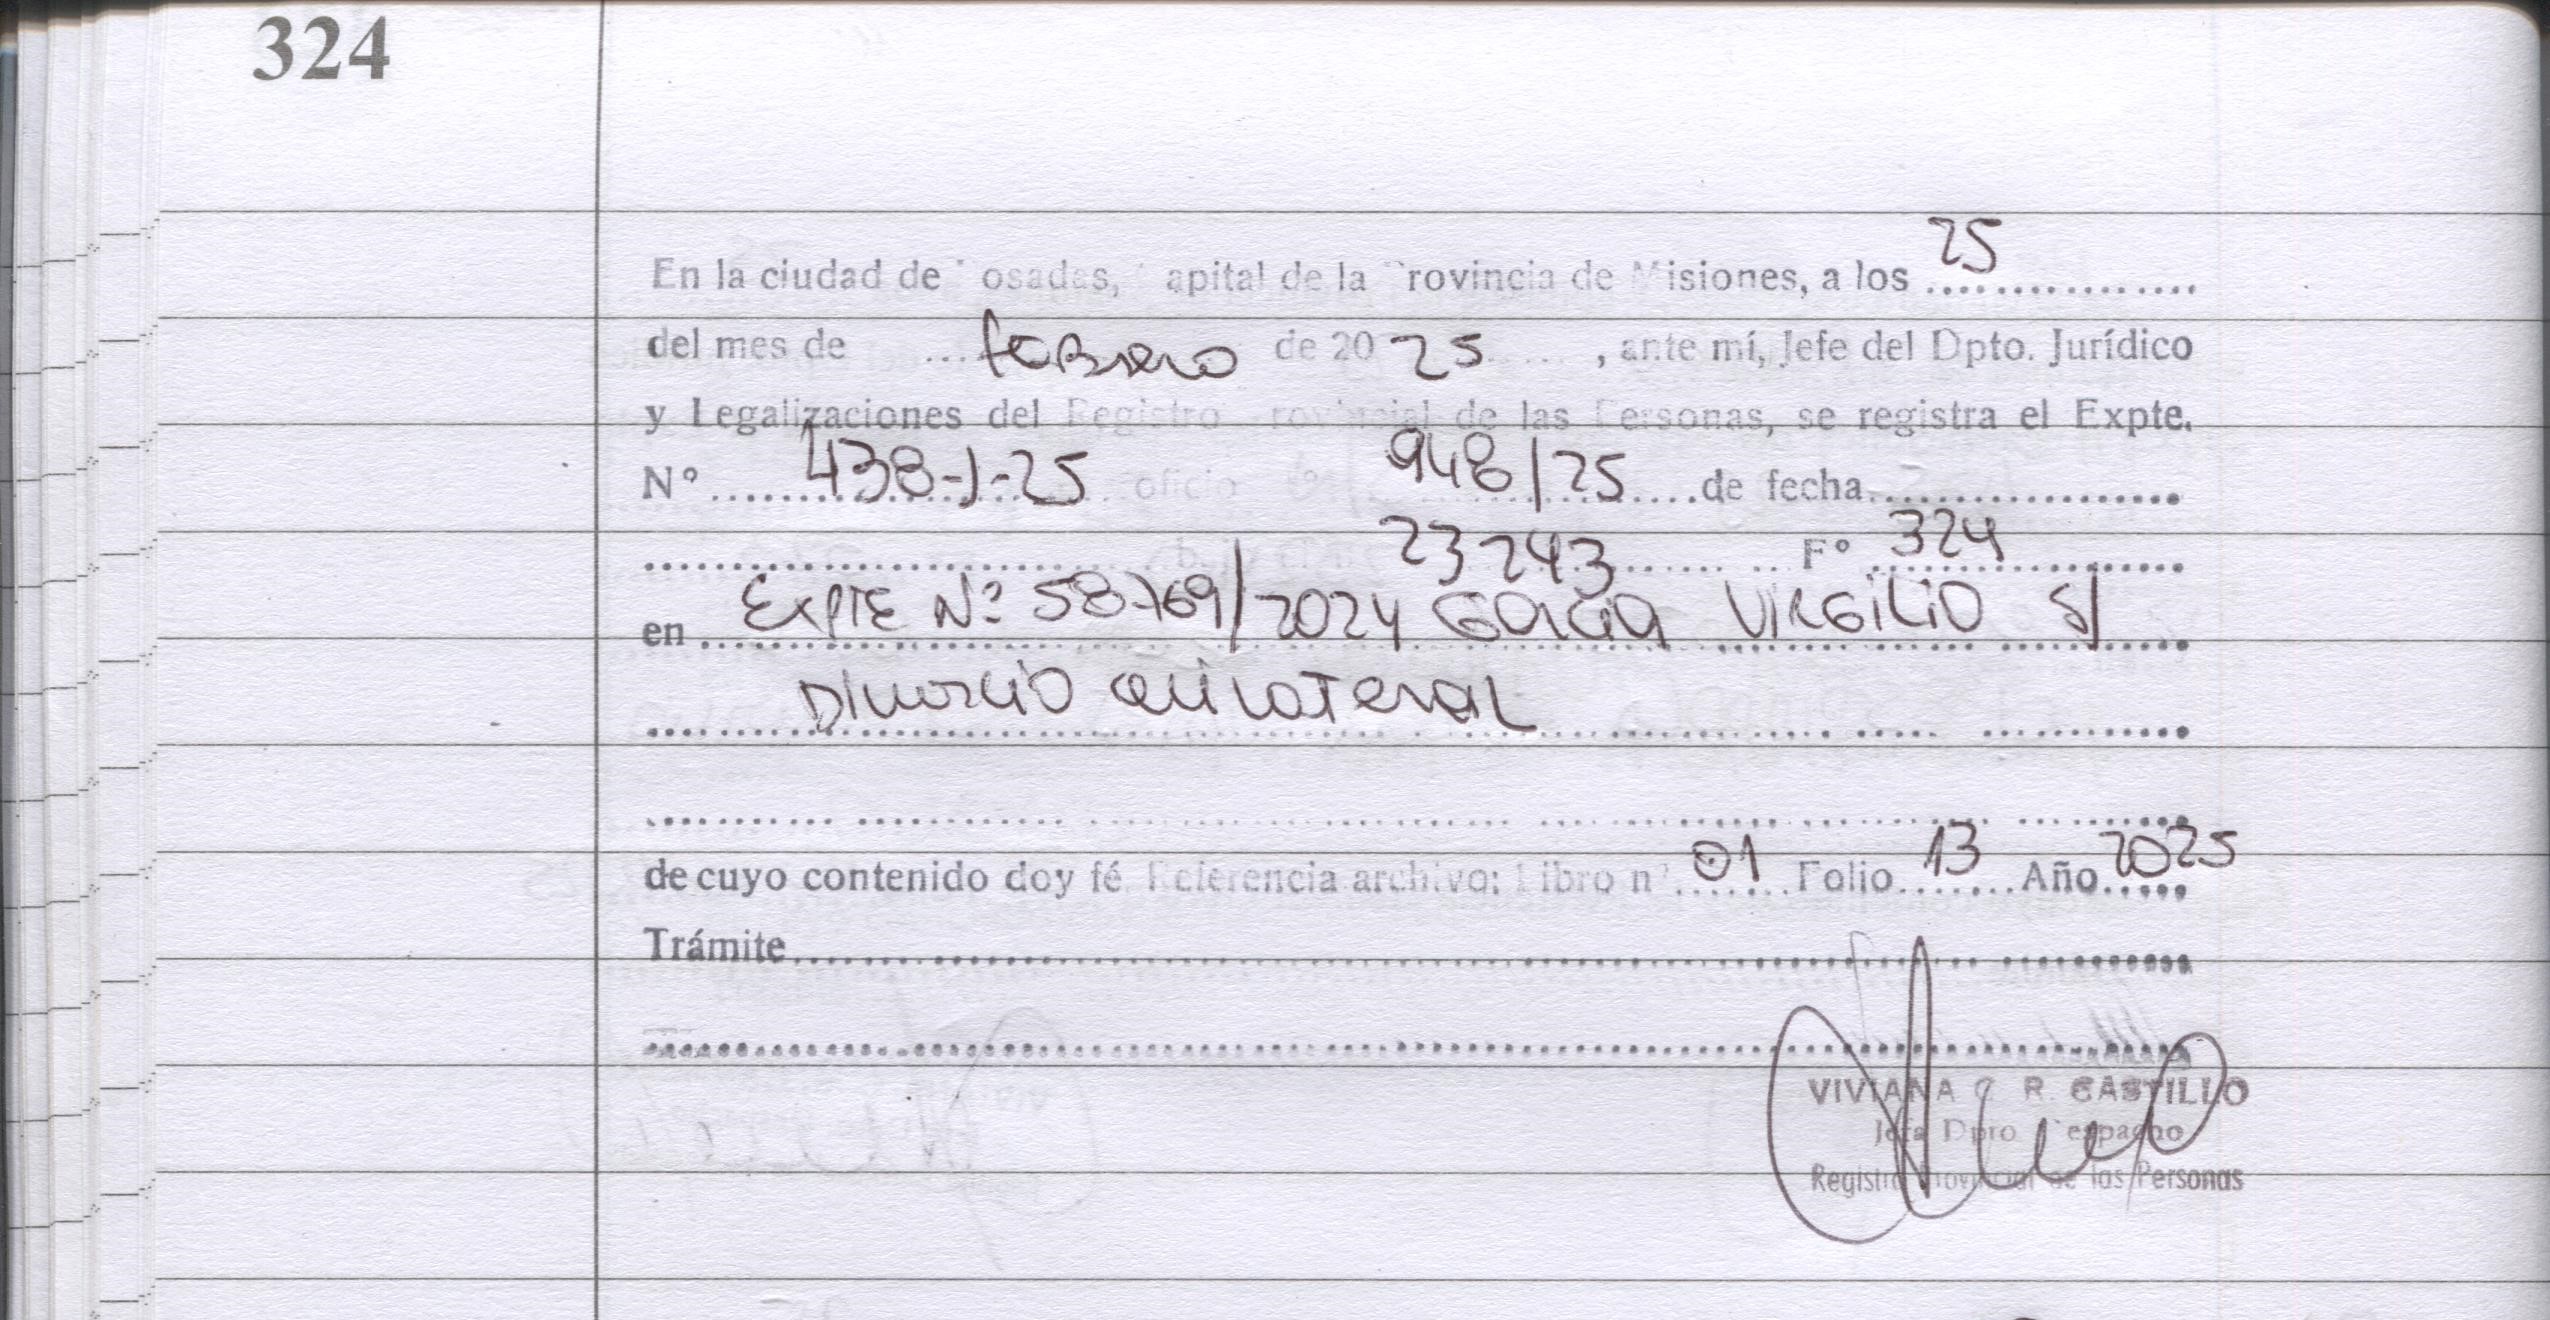 324
En la ciudad de osadas, apital de la rovincia de Misiones, a los 25
del mes de febrero de 20 25, ante mí, Jefe del Dpto. Jurídico
y Legalizaciones del Registro rovincial de las Personas, se registra el Expte.
N° 438-J-25 oficio 948/25 de fecha
23243 F° 324
en Expte Nº 58769/2024 Garcia Virgilio s/
Divorcio unilateral
de cuyo contenido doy fé Referencia archivo: Libro n° 01 Folio 13 Año 2025
Trámite
VIVIANA C. R. CASTILLO
Jefa Dpto espacho
Registro Provincial de las Personas